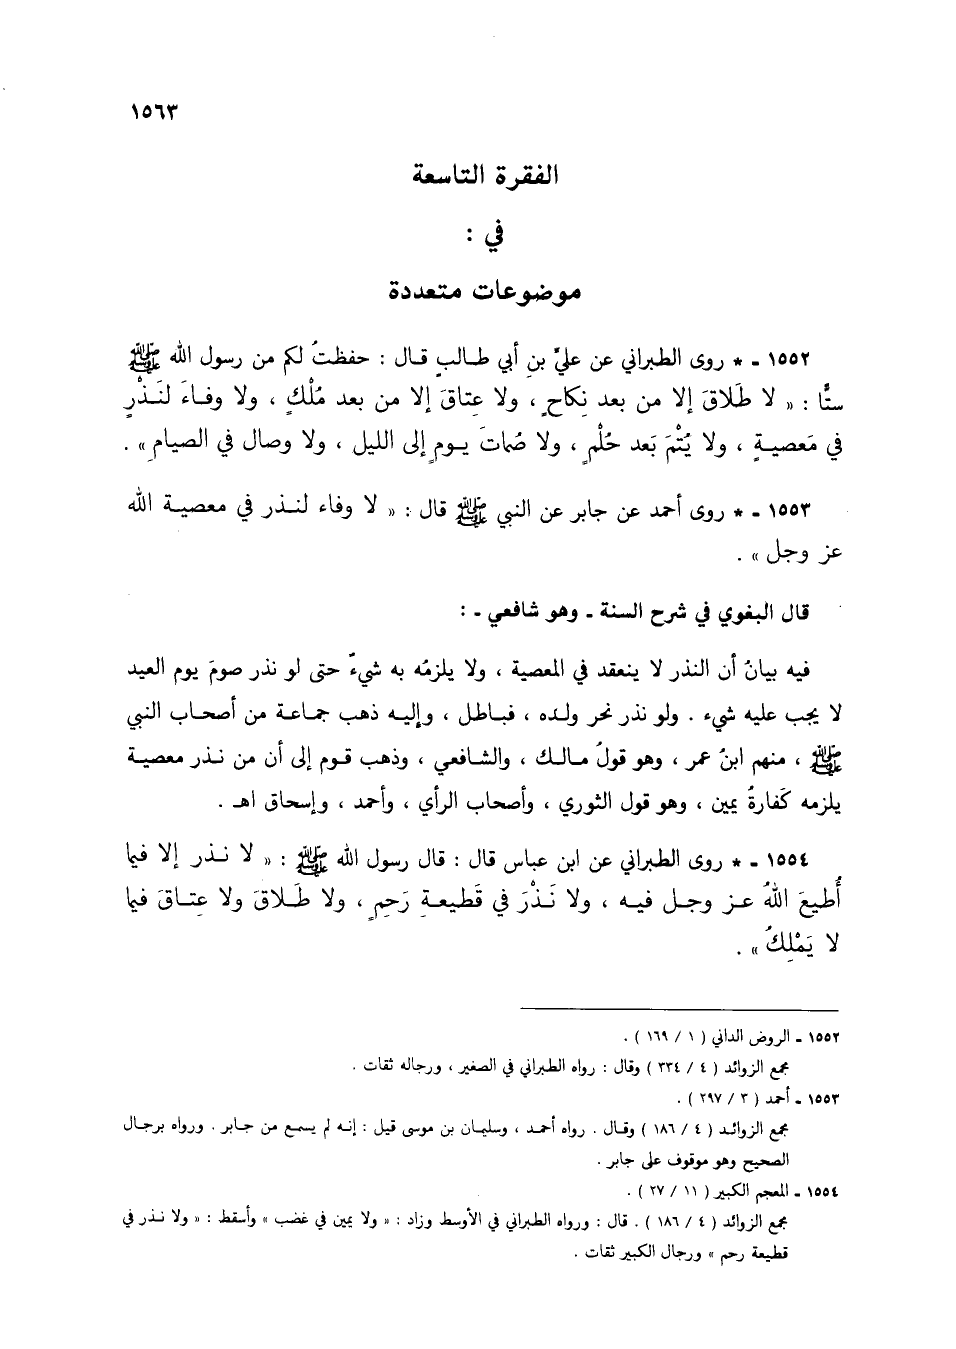 ١٥٦٣
الفقرة التاسعة
في :
موضوعات متعددة
١٥٥٢ ـ * روى الطبراني عن عليِّ بنِ أبي طالبٍ قال : حفظتُ لكم من رسول الله ﷺ
ستًّا : « لا طَلاقَ إلا من بعد نِكاحٍ ، ولا عِتاقَ إلا من بعد مُلْكٍ ، ولا وفاءَ لَنَذْرٍ
في مَعصيةٍ ، ولا يُتْمَ بَعد حُلْمٍ ، ولا صُماتَ يومٍ إلى الليل ، ولا وصال في الصيامِ » .
١٥٥٣ ـ * روى أحمد عن جابر عن النبي ﷺ قال : « لا وفاء لنذر في معصية الله
عز وجل » .
قال البغوي في شرح السنة ـ وهو شافعي ـ :
فيه بيانُ أن النذر لا ينعقد في المعصية ، ولا يلزمُه به شيءٌ حتى لو نذر صومَ يوم العيد
لا يجب عليه شيء . ولو نذر نحر ولده ، فباطل ، وإليه ذهب جماعة من أصحاب النبي
ﷺ ، منهم ابنُ عمر ، وهو قولُ مالك ، والشافعي ، وذهب قوم إلى أن من نذر معصية
يلزمه كَفارةُ يمين ، وهو قول الثوري ، وأصحاب الرأي ، وأحمد ، وإسحاق اهـ .
١٥٥٤ ـ * روى الطبراني عن ابن عباس قال : قال رسول الله ﷺ : « لا نذر إلا فيما
أُطيعَ اللهُ عز وجل فيه ، ولا نَذْرَ في قَطيعةِ رَحِمٍ ، ولا طَلاقَ ولا عِتاقَ فيما
لا يَمْلِكُ » .
١٥٥٢ ـ الروض الداني ( ١ / ١٦٩ ) .
مجمع الزوائد ( ٤ / ٣٣٤ ) وقال : رواه الطبراني في الصغير ، ورجاله ثقات .
١٥٥٣ ـ أحمد ( ٣ / ٢٩٧ ) .
مجمع الزوائد ( ٤ / ١٨٦ ) وقال . رواه أحمد ، وسليمان بن موسى قيل : إنه لم يسمع من جابر . ورواه برجال
الصحيح وهو موقوف على جابر .
١٥٥٤ ـ المعجم الكبير ( ١١ / ٢٧ ) .
مجمع الزوائد ( ٤ / ١٨٦ ) . قال : ورواه الطبراني في الأوسط وزاد : « ولا يمين في غضب » وأسقط : « ولا نذر في
قطيعة رحم » ورجال الكبير ثقات .